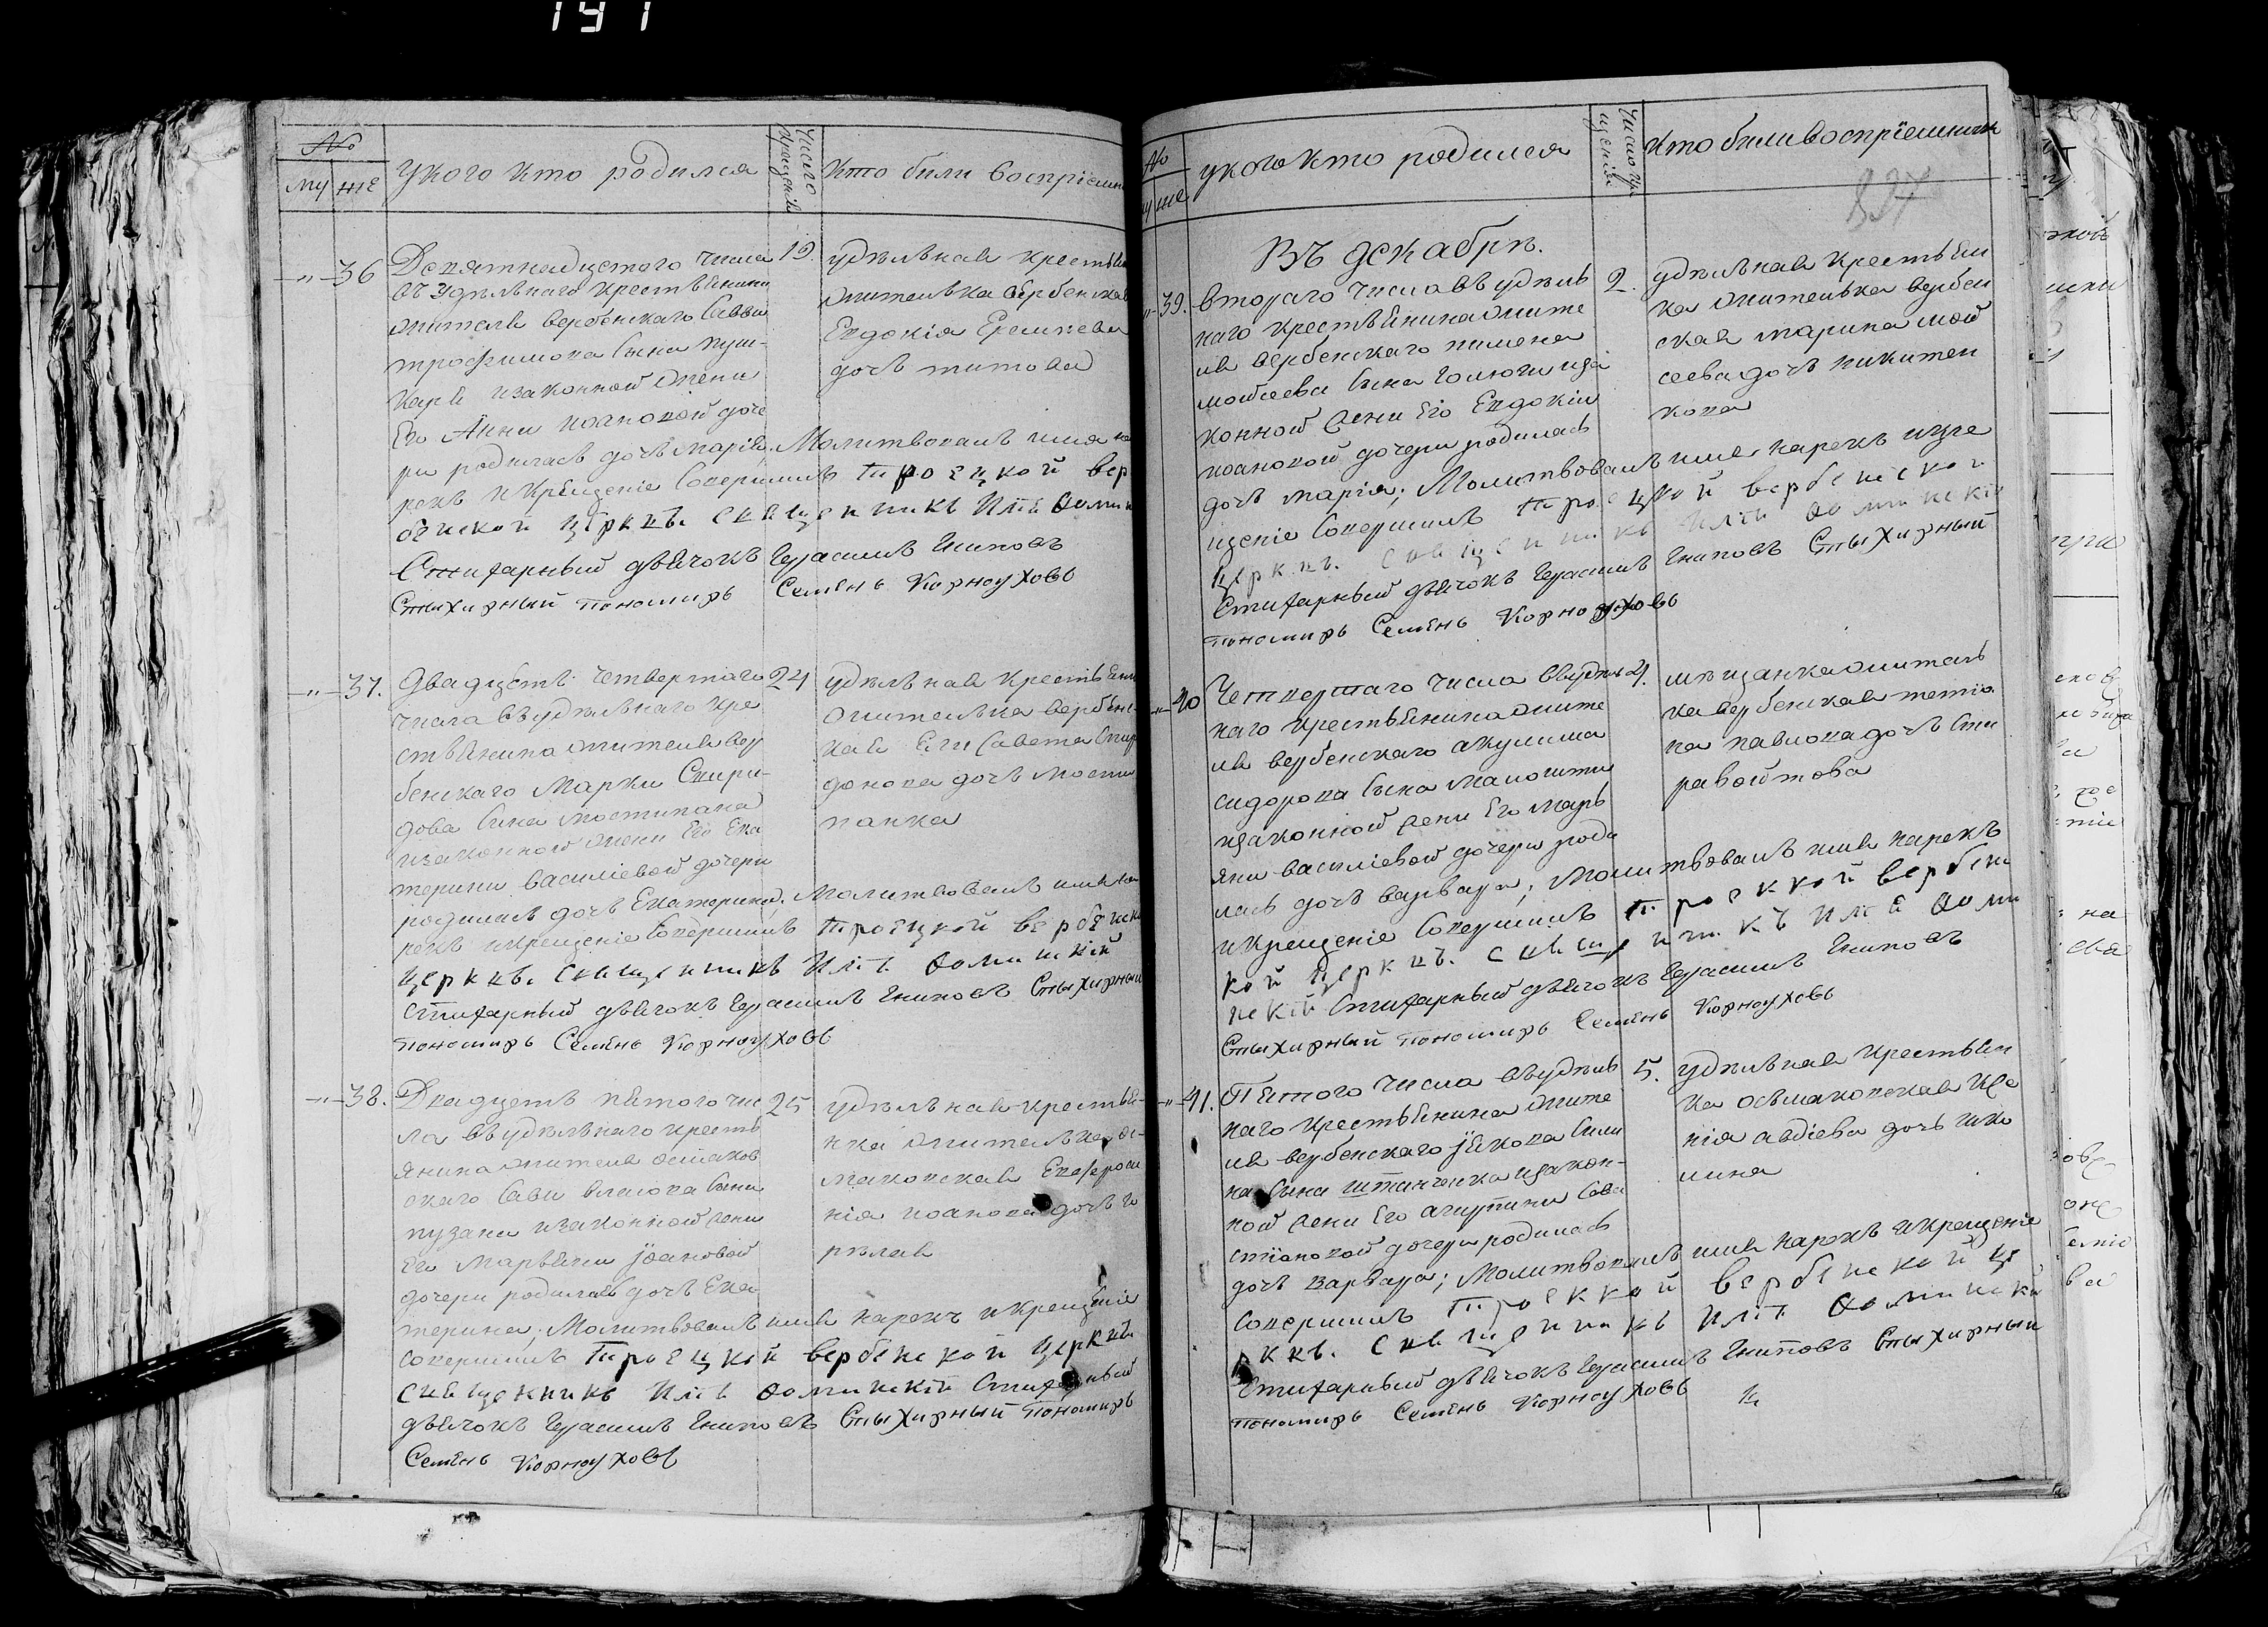 191
№
му же
У кого кто родился
Число крещенія
Кто были воспріемни
36
Девятнадцетого числа
въ удѣльнаго крестьянина
жителя вербенскаго Саввы
трофимова сына пуш-
каря изаконной жены
Его Анны іоановой доче
ри родилась дочь марія. Молитвовалъ имя на
рекъ и крещеніе совершилъ Троецкой вер
бенской церкви священникъ Илія
Стихарный дьячокъ Герасимъ
Стыхирный пономарь Семенъ Корноуховъ
19.
удѣльная крестьян
жителька вербенская
Евдокія Еремѣева
дочь титова
37.
Двадцеть четвертаго
числа въ удѣльнаго кре
стьянина жителя вер
бенскаго Марки Спири-
дова сына мостипана
изаконной жены Его Ека
терины василіевой дочери
родилась дочь Екатерина; Молитвовалъ имя на
рекъ и крещеніе совершилъ Троецкой вербенско
церкви священникъ Илія
Стихарный дьячокъ Герасимъ Стыхирный
пономарь Семенъ Корноуховъ
24
удѣльная крестьян
жителька вербенс-
кая Елисавета Спир
донова дочь мости
панка
38.
Двадцеть пятого чис
ла въ удѣльнаго кресть
янина жителя осмаков
скаго Савы власова сына
пузана изаконной жены
Его Марьяны іоановой
дочери родилась дочь Ека
терина; Молитвовалъ имя нарекъ и крещеніе
совершилъ Троецкой вербенской церкви
священникъ Илія Стихарный
дьячокъ Герасимъ Стыхирный пономарь
Семенъ Корноуховъ
25
удѣльная крестья-
нка жителька ос-
маковская Евфроси
нія іоанова дочь го
рѣлая
№
же
У кого кто родился
Число кр
щенія
Кто были воспріемники
837
Въ декабрѣ.
39.
Втораго числа въ удѣль
наго крестьянина жите
ля вербенскаго пимена
мойсеева сына иза
конной жены Его Евдокіи
іоановой дочери родилась
дочь марія; Молитвовалъ имя нарекъ икре
щеніе совершилъ Троецкой вербенской
церкви священникъ Илія
Стихарный дьячокъ Герасимъ Стыхирный
пономарь Семенъ Корноуховъ
2.
удѣльная крестьян
ка жителька вербен
ская марина мой
сеева дочь никитен
кова
40
Четвертаго числа въ удѣль
наго крестьянина жите
ля вербенскаго акулима
сидорова сына
изаконной жены Его Марь
яны василіевой дочери роди
лась дочь варвара; Молитвовалъ имя нарекъ
и крещеніе совершилъ Троекой вербенс
кой церкви священникъ Илія
Стихарный дьячокъ Герасимъ
Стыхирный пономарь Семенъ Корноуховъ
4.
мѣщанка житель
ка вербенская
на павлова дочь
41.
Пятого числа въ удѣль
наго крестьянина жите
ля вербенскаго іякова сына
изакон-
ной жены Его агрипины Сава
стіяновой дочери родилась
дочь варвара; Молитвовалъ имя нарекъ и крещеніе
совершилъ Троекой вербенской це
ркви священникъ Илія
Стихарный дьячокъ Герасимъ Стыхирный
пономарь Семенъ Корноуховъ
5.
удѣльная крестьян
ка осьмаковская Ксе
нія авдіева дочь